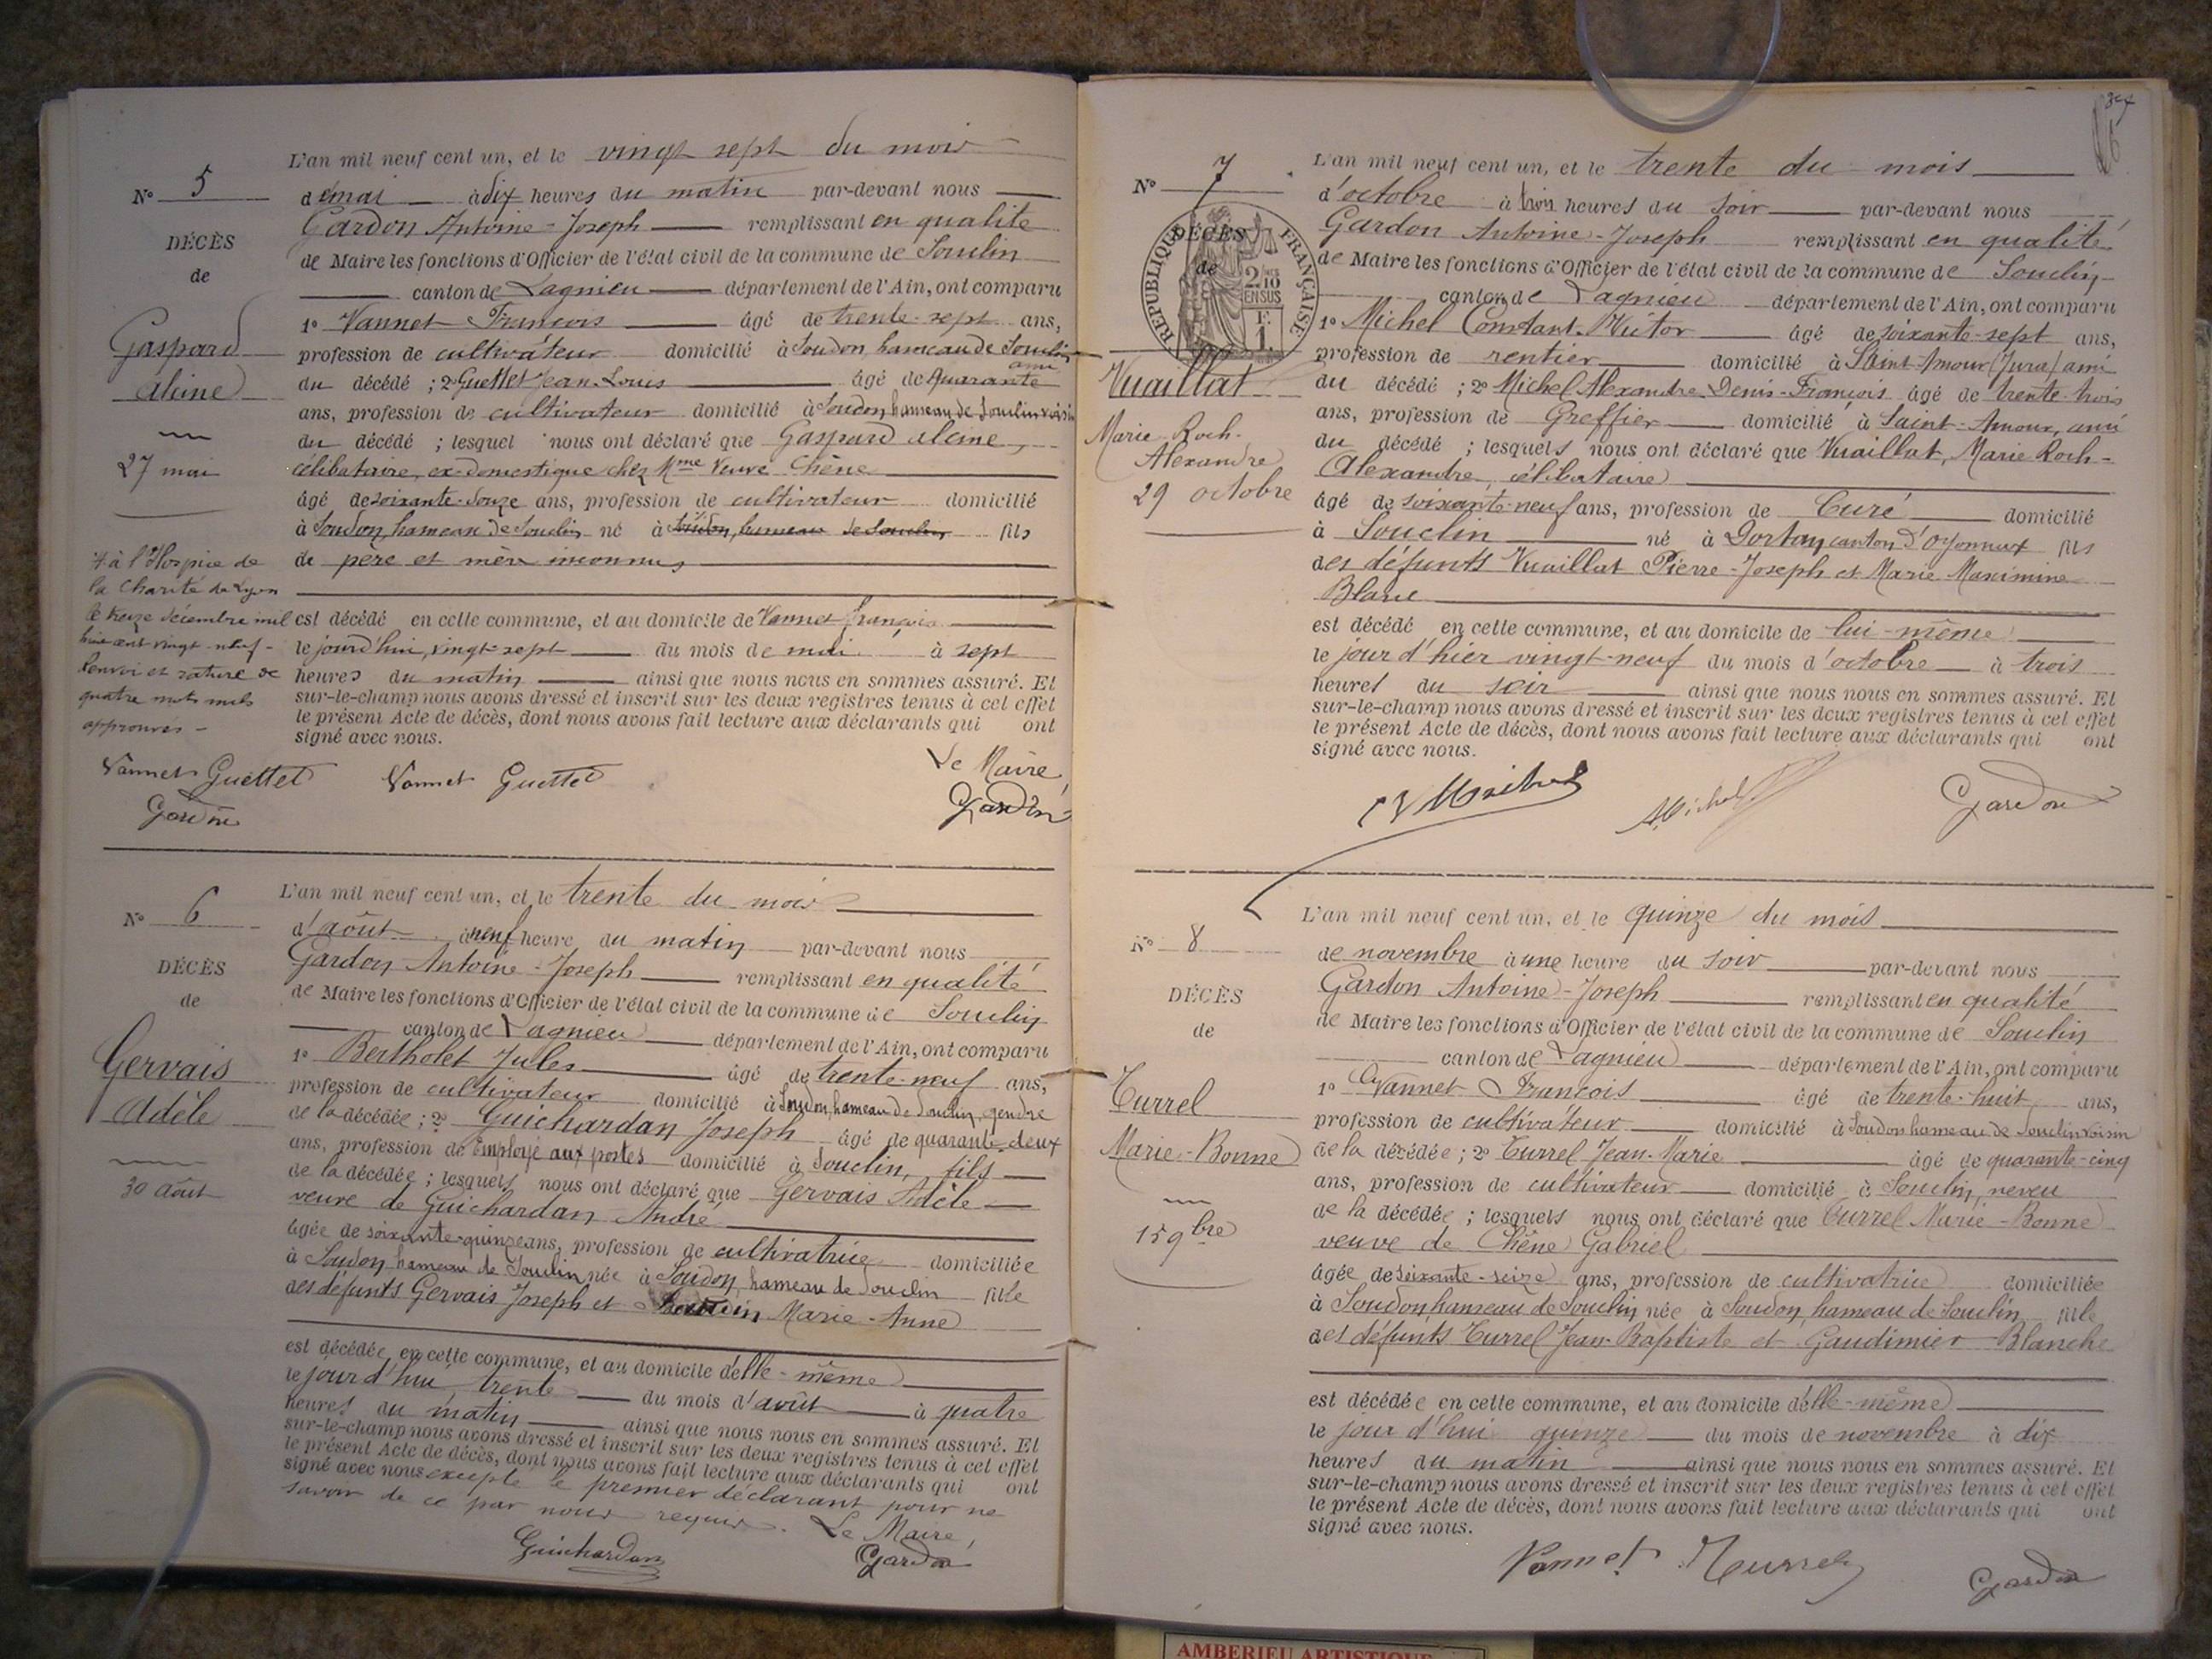 N° 5
DÉCÈS
de
Gaspard
Aleine
27 mai
à l'Hospice de
la Charité de Lyon
le treize décembre mil
huit cent vingt-neuf -
Renvoi et rature de
quatre mots nuls
approuvés -
Vannet Guettet
Gardon
L'an mil neuf cent un, et le vingt sept du mois
de mai à dix heures du matin par-devant nous
Gardon Antoine-Joseph remplissant en qualité
de Maire les fonctions d'Officier de l'état civil de la commune de Souclin
canton de Lagnieu département de l'Ain, ont comparu
1° Vannet François âgé de trente-sept ans,
profession de cultivateur domicilié à Soudon, hameau de Souclin
ami
du décédé ; 2° Guettet Jean-Louis âgé de quarante
ans, profession de cultivateur domicilié à Soudon hameau de Souclin voisin
du décédé ; lesquel nous ont déclaré que Gaspard Aleine,
célibataire, ex-domestique chez Mme Veuve Chêne
âgé de soixante-douze ans, profession de cultivateur domicilié
à Soudon, hameau de Souclin né à Soudon, hameau de Souclin fils
de père et mère inconnus
est décédé en cette commune, et au domicile de Vannet François
le jourd'hui, vingt-sept du mois de mai à sept
heures du matin ainsi que nous nous en sommes assuré. Et
sur-le-champ nous avons dressé et inscrit sur les deux registres tenus à cet effet
le présent Acte de décès, dont nous avons fait lecture aux déclarants qui ont
signé avec nous.
Vannet Guettet
Le Maire,
Gardon
N° 6
DÉCÈS
de
Gervais
Adèle
30 août
L'an mil neuf cent un, et le trente du mois
d'août à neuf heure du matin par-devant nous
Gardon Antoine-Joseph remplissant en qualité
de Maire les fonctions d'Officier de l'état civil de la commune de Souclin
canton de Lagnieu département de l'Ain, ont comparu
1° Bertholet Jules âgé de trente-neuf ans,
profession de cultivateur domicilié à Soudon hameau de Souclin, gendre
de la décédée ; 2° Guichardan Joseph âgé de quarante-deux
ans, profession de Employé aux postes domicilié à Souclin, fils
de la décédée ; lesquels nous ont déclaré que Gervais Adèle
veuve de Guichardan André
âgée de soixante-quinze ans, profession de cultivatrice domiciliée
à Soudon hameau de Souclin née à Soudon, hameau de Souclin fille
des défunts Gervais Joseph et Marie-Anne
est décédée en cette commune, et au domicile d'elle-même
le jour d'hui, trente du mois d'août à quatre
heures du matin ainsi que nous nous en sommes assuré. Et
sur-le-champ nous avons dressé et inscrit sur les deux registres tenus à cet effet
le présent Acte de décès, dont nous avons fait lecture aux déclarants qui ont
signé avec nous excepté le premier déclarant pour ne
savoir de ce par nous requis. Le Maire,
Guichardan
Gardon
N° 7
DÉCÈS
de
RÉPUBLIQUE FRANÇAISE
2/10
EN SUS
Vuaillat
Marie Roch-
Alexandre
29 octobre
L'an mil neuf cent un, et le trente du mois
d'octobre à trois heures du soir par-devant nous
Gardon Antoine-Joseph remplissant en qualité
de Maire les fonctions d'Officier de l'état civil de la commune de Souclin
canton de Lagnieu département de l'Ain, ont comparu
1° Michel Constant-Victor âgé de soixante-sept ans,
profession de rentier domicilié à Saint-Amour (Jura) ami
du décédé ; 2° Michel Alexandre Denis-François âgé de trente-trois
ans, profession de Greffier domicilié à Saint-Amour, ami
du décédé ; lesquels nous ont déclaré que Vuaillat, Marie Roch-
Alexandre, célibataire
âgé de soixante-neuf ans, profession de Curé domicilié
à Souclin né à Dortan canton d'Oyonnax fils
des défunts Vuaillat Pierre-Joseph et Marie-Maximine
Blanc
est décédé en cette commune, et au domicile de lui-même
le jour d'hier vingt-neuf du mois d'octobre à trois
heures du soir ainsi que nous nous en sommes assuré. Et
sur-le-champ nous avons dressé et inscrit sur les deux registres tenus à cet effet
le présent Acte de décès, dont nous avons fait lecture aux déclarants qui ont
signé avec nous.
A. Michel
Gardon
N° 8
DÉCÈS
de
Turrel
Marie-Bonne
15 9bre
L'an mil neuf cent un, et le quinze du mois
de novembre à une heure du soir par-devant nous
Gardon Antoine-Joseph remplissant en qualité
de Maire les fonctions d'Officier de l'état civil de la commune de Souclin
canton de Lagnieu département de l'Ain, ont comparu
1° Vannet François âgé de trente-huit ans,
profession de cultivateur domicilié à Soudon hameau de Souclin voisin
de la décédée ; 2° Turrel Jean-Marie âgé de quarante-cinq
ans, profession de cultivateur domicilié à Souclin, neveu
de la décédée ; lesquels nous ont déclaré que Turrel Marie-Bonne
veuve de Chêne Gabriel
âgée de soixante-seize ans, profession de cultivatrice domiciliée
à Soudon hameau de Souclin née à Soudon, hameau de Souclin fille
des défunts Turrel Jean-Baptiste et Gaudimier Blanche
est décédée en cette commune, et au domicile d'elle-même
le jour d'hui quinze du mois de novembre à dix
heures du matin ainsi que nous nous en sommes assuré. Et
sur-le-champ nous avons dressé et inscrit sur les deux registres tenus à cet effet
le présent Acte de décès, dont nous avons fait lecture aux déclarants qui ont
signé avec nous.
Vannet Turrel
Gardon
AMBERIEU ARTISTIQUE